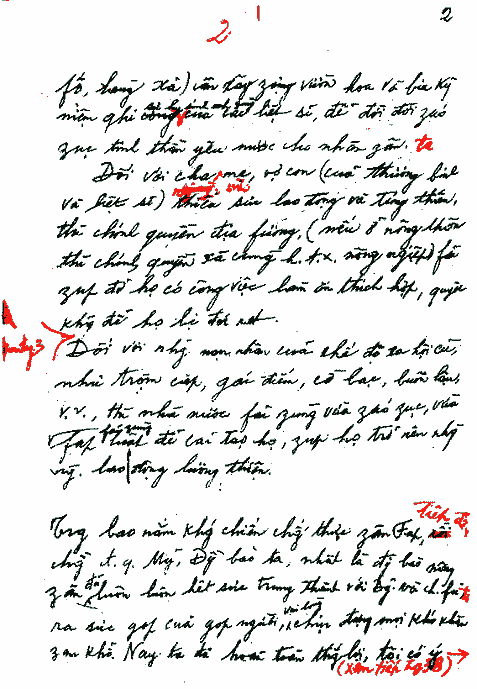 2 1 2
fố, làng xã) cần xây zựng vườn hoa và bia kỷ
niệm ghi sự hy sinh anh zũng của các liệt sĩ, để đời đời záo
zục tinh thần yêu nước cho nhân zân ta
Đối với cha mẹ, vợ con (của thương binh
và liệt sĩ) thiếu sức lao động và túng thiếu,
thì chính quyền địa fương, (nếu ở nông thôn
thì chính quyền xã cùng h.t.x. nông nghiệp) fải
zúp đỡ họ có công việc làm ăn thích hợp, quyết
khg để họ bị đói rét.
Đối với nhg nạn nhân của chế độ xã hội cũ,
như trộm cắp, gái điếm, cờ bạc, buôn lậu,
v.v., thì nhà nước fải zùng vừa záo zục, vừa
fải zùng
fáp luật để cải tạo họ, zúp họ trở nên nhg
ng. lao động lương thiện.
tiếp đến
Trg bao năm khg chiến chg thực zân Fáp,
chg đ.q. Mỹ, Đg bào ta, nhất là đg bào nông
zân đã luôn luôn hết sức trung thành với Đg và ch. fủ ta
ra sức góp của góp người, vui lòng chịu đựng mọi khó khăn
zan khổ. Nay ta đã hoàn toàn thắg lợi, tôi có ý
(xem tiếp tg 3B)